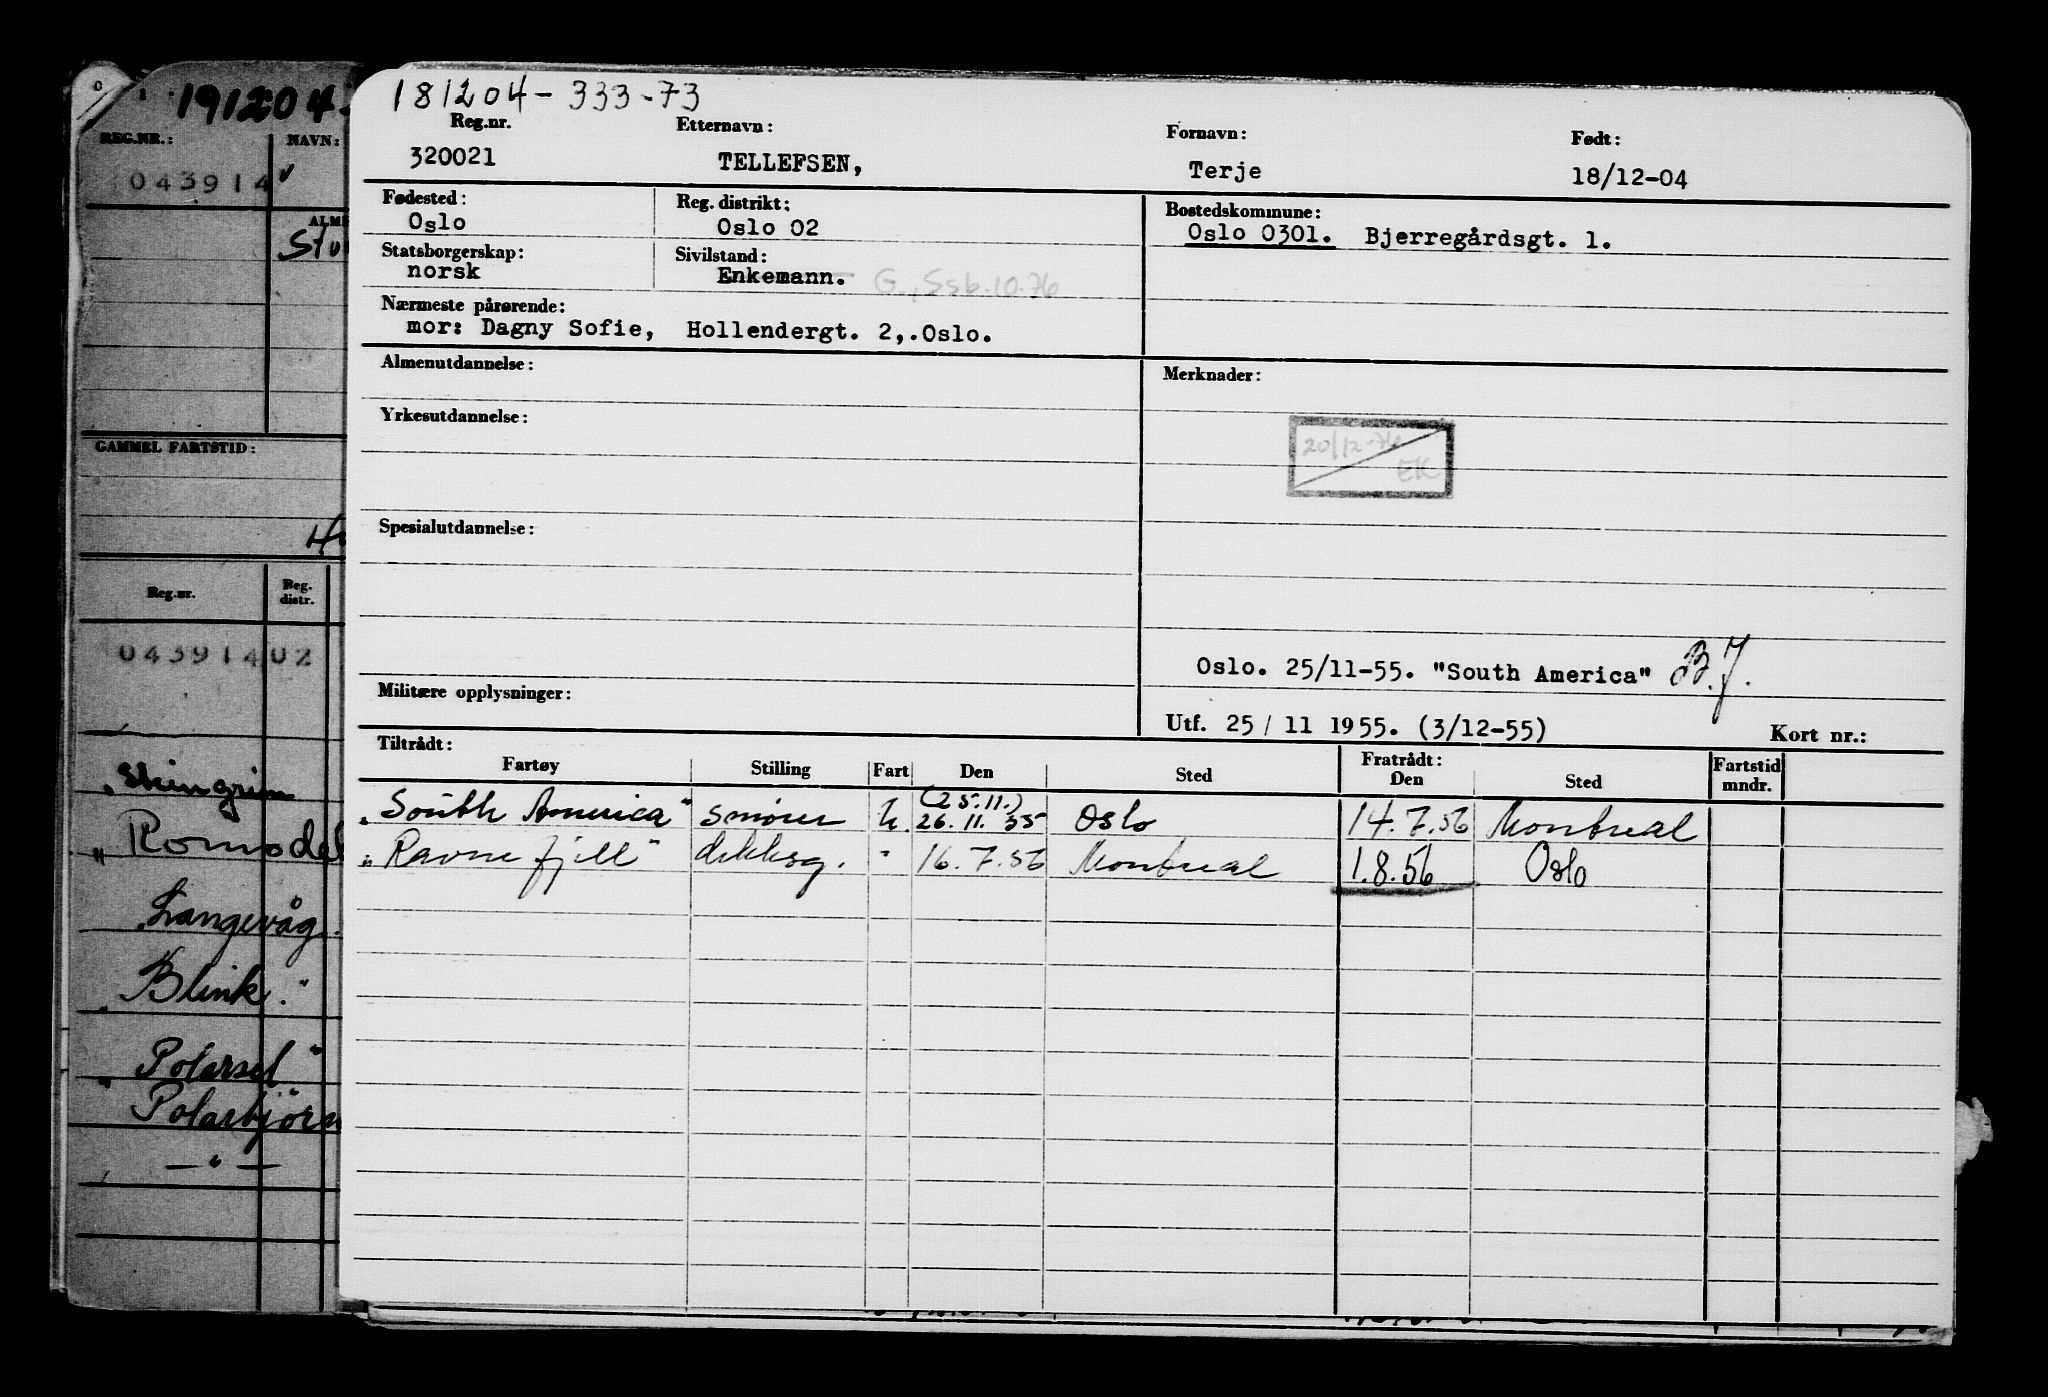 191204-
REG.NR.:
NAVN:
043914
GAMMEL FARTSTID:
Reg.nr.
Reg.
distr.
043914 02
"Romsdal
"Langevåg.
"Blink."
"Polarsel"
"Polarbjörn
— " —
181204-333-73
Reg.nr.
Etternavn:
Fornavn:
Født:
320021
TELLEFSEN,
Terje
18/12-04
Fødested:
Reg. distrikt:
Bostedskommune:
Oslo
Oslo 02
Oslo 0301. Bjerregårdsgt. 1.
Statsborgerskap:
Sivilstand:
norsk
Enkemann. G., Ssb.10.76
Nærmeste pårørende:
mor: Dagny Sofie, Hollendergt. 2,.Oslo.
Almenutdannelse:
Merknader:
Yrkesutdannelse:
20/12-76
EK
Spesialutdannelse:
Oslo. 25/11-55. "South America" B.J.
Militære opplysninger:
Utf. 25/11 1955. (3/12-55)
Kort nr.:
Tiltrådt:
Fratrådt:
Fartstid
Fartøy
Stilling
Fart
Den
Sted
Den
Sted
mndr.
(25.11.)
"South America" smører u. 26.11.55 Oslo 14.7.56 Montreal
"Ravnefjell" dekksg. " 16.7.56 Montreal 1.8.56 Oslo